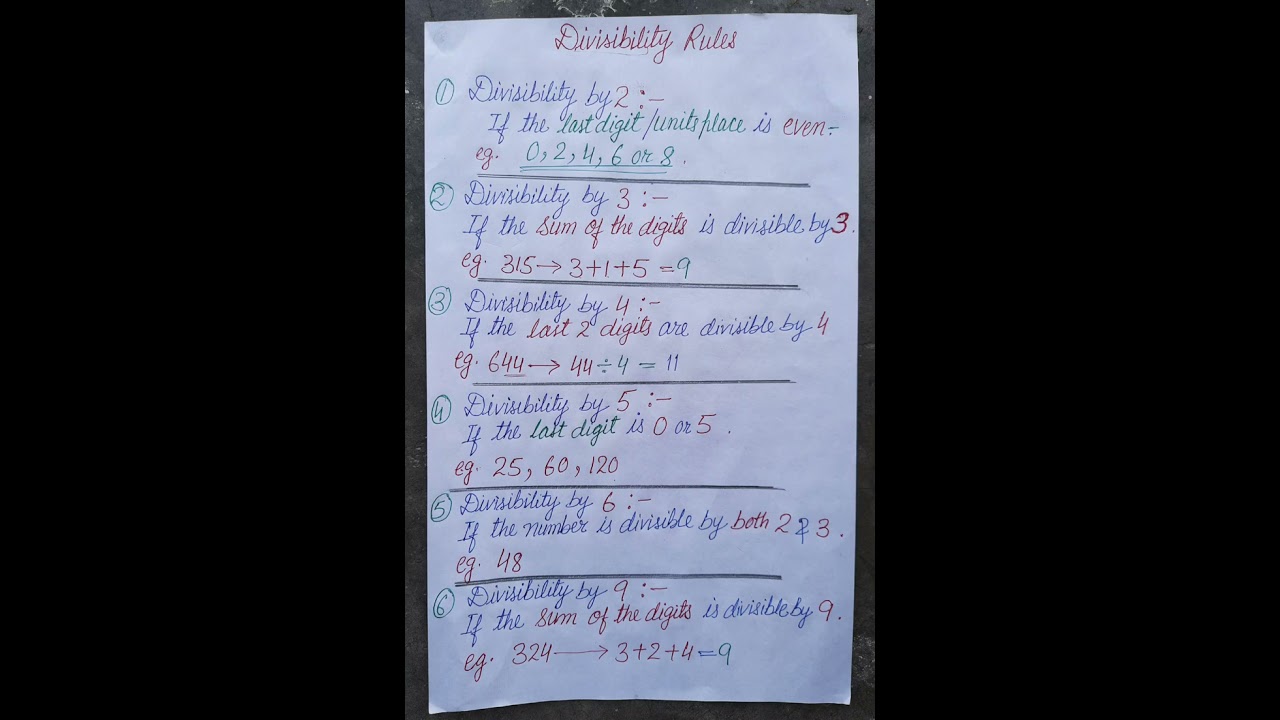 Divisibility Rules
① Divisibility by 2 :-
If the last digit/units place is even-
eg. 0, 2, 4, 6 or 8.
② Divisibility by 3 :-
If the sum of the digits is divisible by 3.
eg. 315 → 3+1+5 = 9
③ Divisibility by 4 :-
If the last 2 digits are divisible by 4
eg. 644 → 44 ÷ 4 = 11
④ Divisibility by 5 :-
If the last digit is 0 or 5.
eg. 25, 60, 120
⑤ Divisibility by 6 :-
If the number is divisible by both 2 & 3.
eg. 48
⑥ Divisibility by 9 :-
If the sum of the digits is divisible by 9.
eg. 324 → 3+2+4 = 9